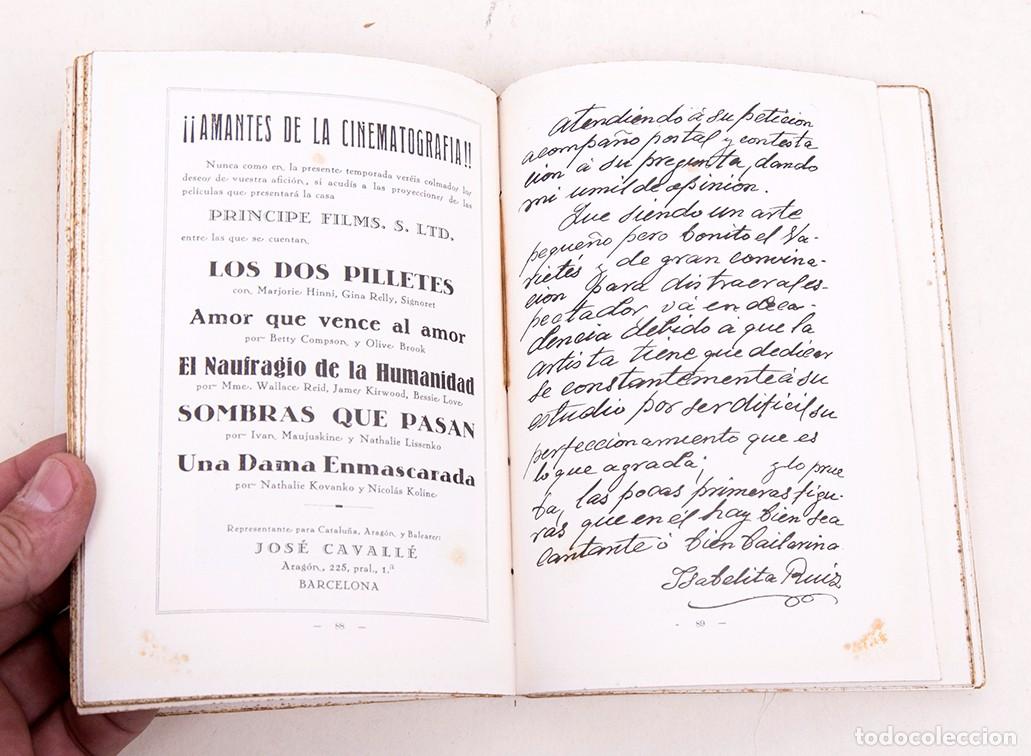 ¡¡AMANTES DE LA CINEMATOGRAFIA!!
Nunca como en la presente temporada veréis colmados los
deseos de vuestra afición, si acudís a las proyecciones de las
películas que presentará la casa
PRINCIPE FILMS. S. LTD.
entre las que se cuentan.
LOS DOS PILLETES
con Marjorie Hinni, Gina Relly, Signoret
Amor que vence al amor
por Betty Compson y Olive Brook
El Naufragio de la Humanidad
por Mme. Wallace Reid, James Kirwood, Bessie Love
SOMBRAS QUE PASAN
por Ivan Maujuskine y Nathalie Lissenko
Una Dama Enmascarada
por Nathalie Kovanko y Nicolás Koline
Representante para Cataluña, Aragón y Baleares:
JOSÉ CAVALLÉ
Aragón, 225, pral., 1.ª
BARCELONA
— 88 —
atendiendo á su peticion
acompaño postal y contesta
cion á su pregunta, dando
mi umil de opinión.
Que siendo un arte
pequeño pero bonito el Va-
rietés y de gran convina-
cion para distraer al es-
pectador vá en deca-
dencia debido á que la
artista tiene que dedicar
se constantemente á su
estudio por ser dificil su
perfeccionamiento que es
lo que agrada; y lo prue
ba, las pocas primeras figu-
ras que en él hay bien sea
cantante ó bien bailarina
Isabelita Ruiz
- 89 -
todocoleccion